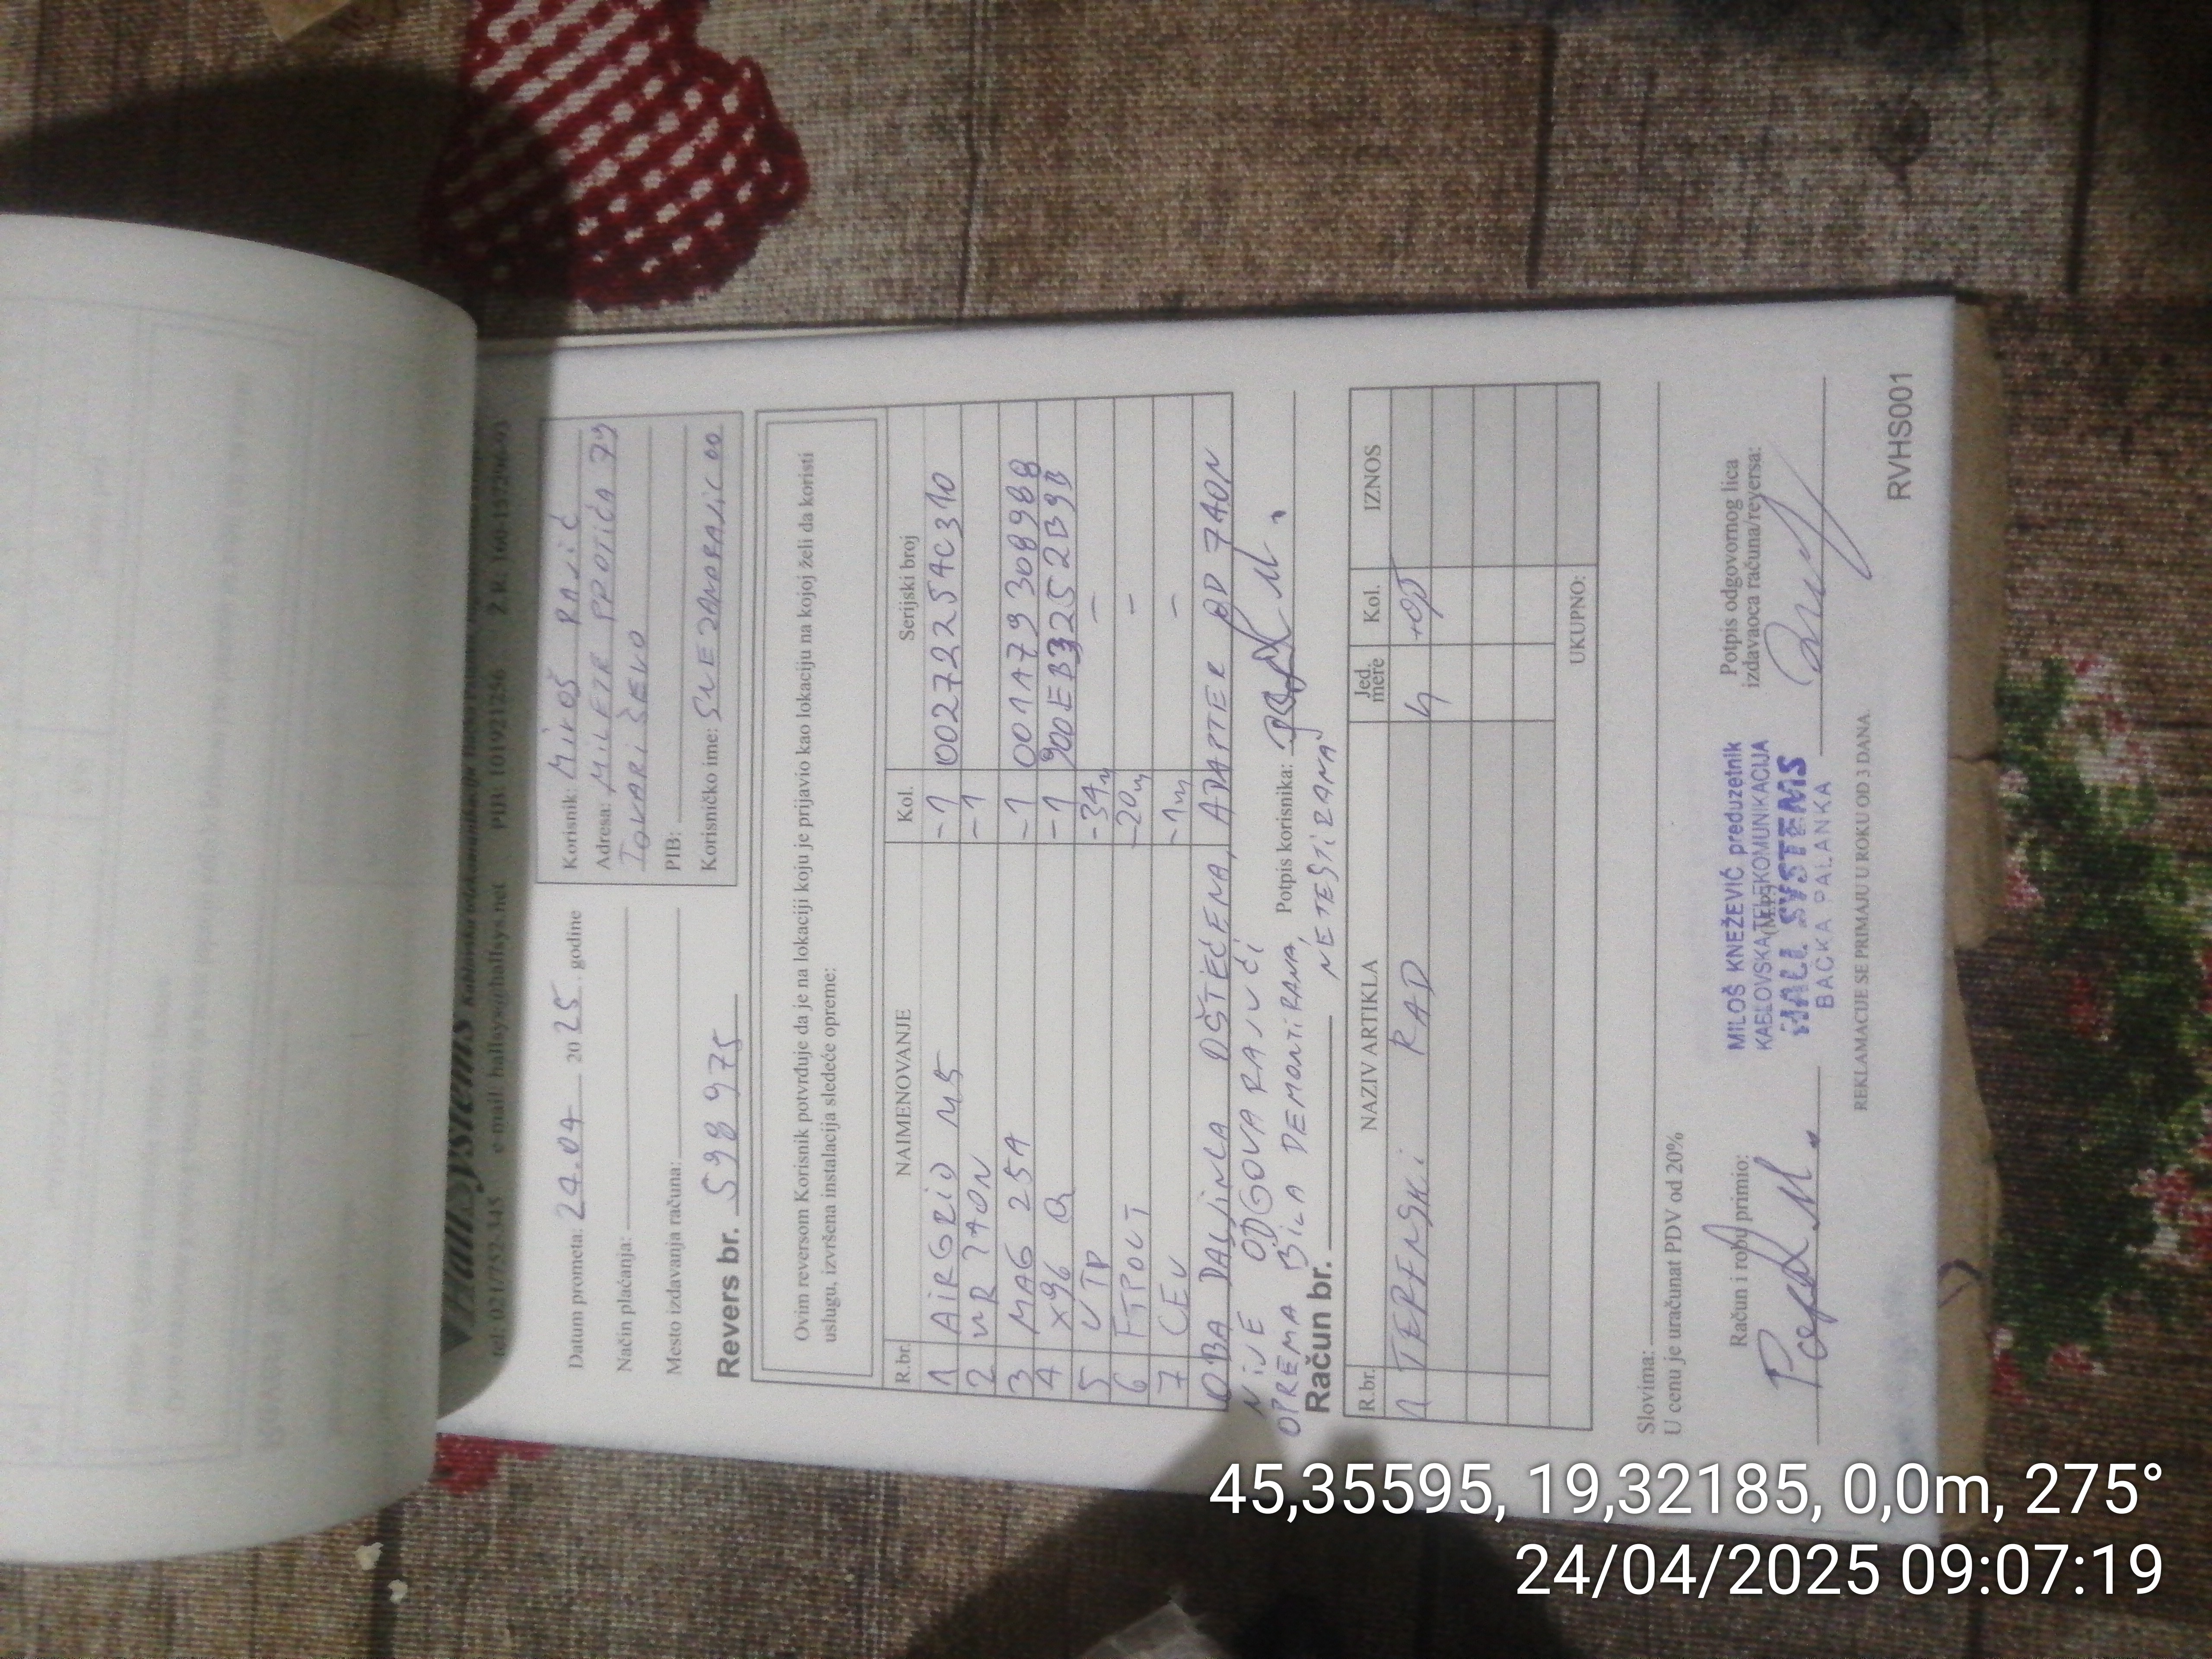 HallSystems
tel: 021/752-345 e-mail: hallsys@hallsys.net PIB: 101921256 Ž.R. 160-157296-93
Datum prometa: 24.04 20 25. godine
Način plaćanja:
Mesto izdavanja računa:
Korisnik: MILOŠ RAJIĆ
Adresa: MILETE PROTIĆA 79
TOVARIŠEVO
PIB:
Korisničko ime:
Revers br. 598975
Ovim reversom Korisnik potvrđuje da je na lokaciji koju je prijavio kao lokaciju na kojoj želi da koristi
uslugu, izvršena instalacija sledeće opreme:
R.br. NAIMENOVANJE Kol. Serijski broj
1 AIRGRID M5 -1 00272254C310
2 WR 740N -1
3 MAG 254 -1 001A79308988
4 X96 Q -1 900EB3252B9B
5 UTP -34m –
6 FTPOUT -20m –
7 CEV -1m –
OBA DALJINCA OŠTEĆENA, ADAPTER OD 740N
NIJE ODGOVARAJUĆI
Potpis korisnika:
OPREMA BILA DEMONTIRANA, NETESTIRANA
Račun br.
R.br. NAZIV ARTIKLA Jed. mere Kol. IZNOS
1 TERENSKI RAD h
UKUPNO:
Slovima:
U cenu je uračunat PDV od 20%
Račun i robu primio:
MILOŠ KNEŽEVIĆ preduzetnik
KABLOVSKA TELEKOMUNIKACIJA
(M.P.)
HALL SYSTEMS
BAČKA PALANKA
Potpis odgovornog lica
izdavaoca računa/reversa:
REKLAMACIJE SE PRIMAJU U ROKU OD 3 DANA.
RVHS001
45,35595, 19,32185, 0,0m, 275°
24/04/2025 09:07:19